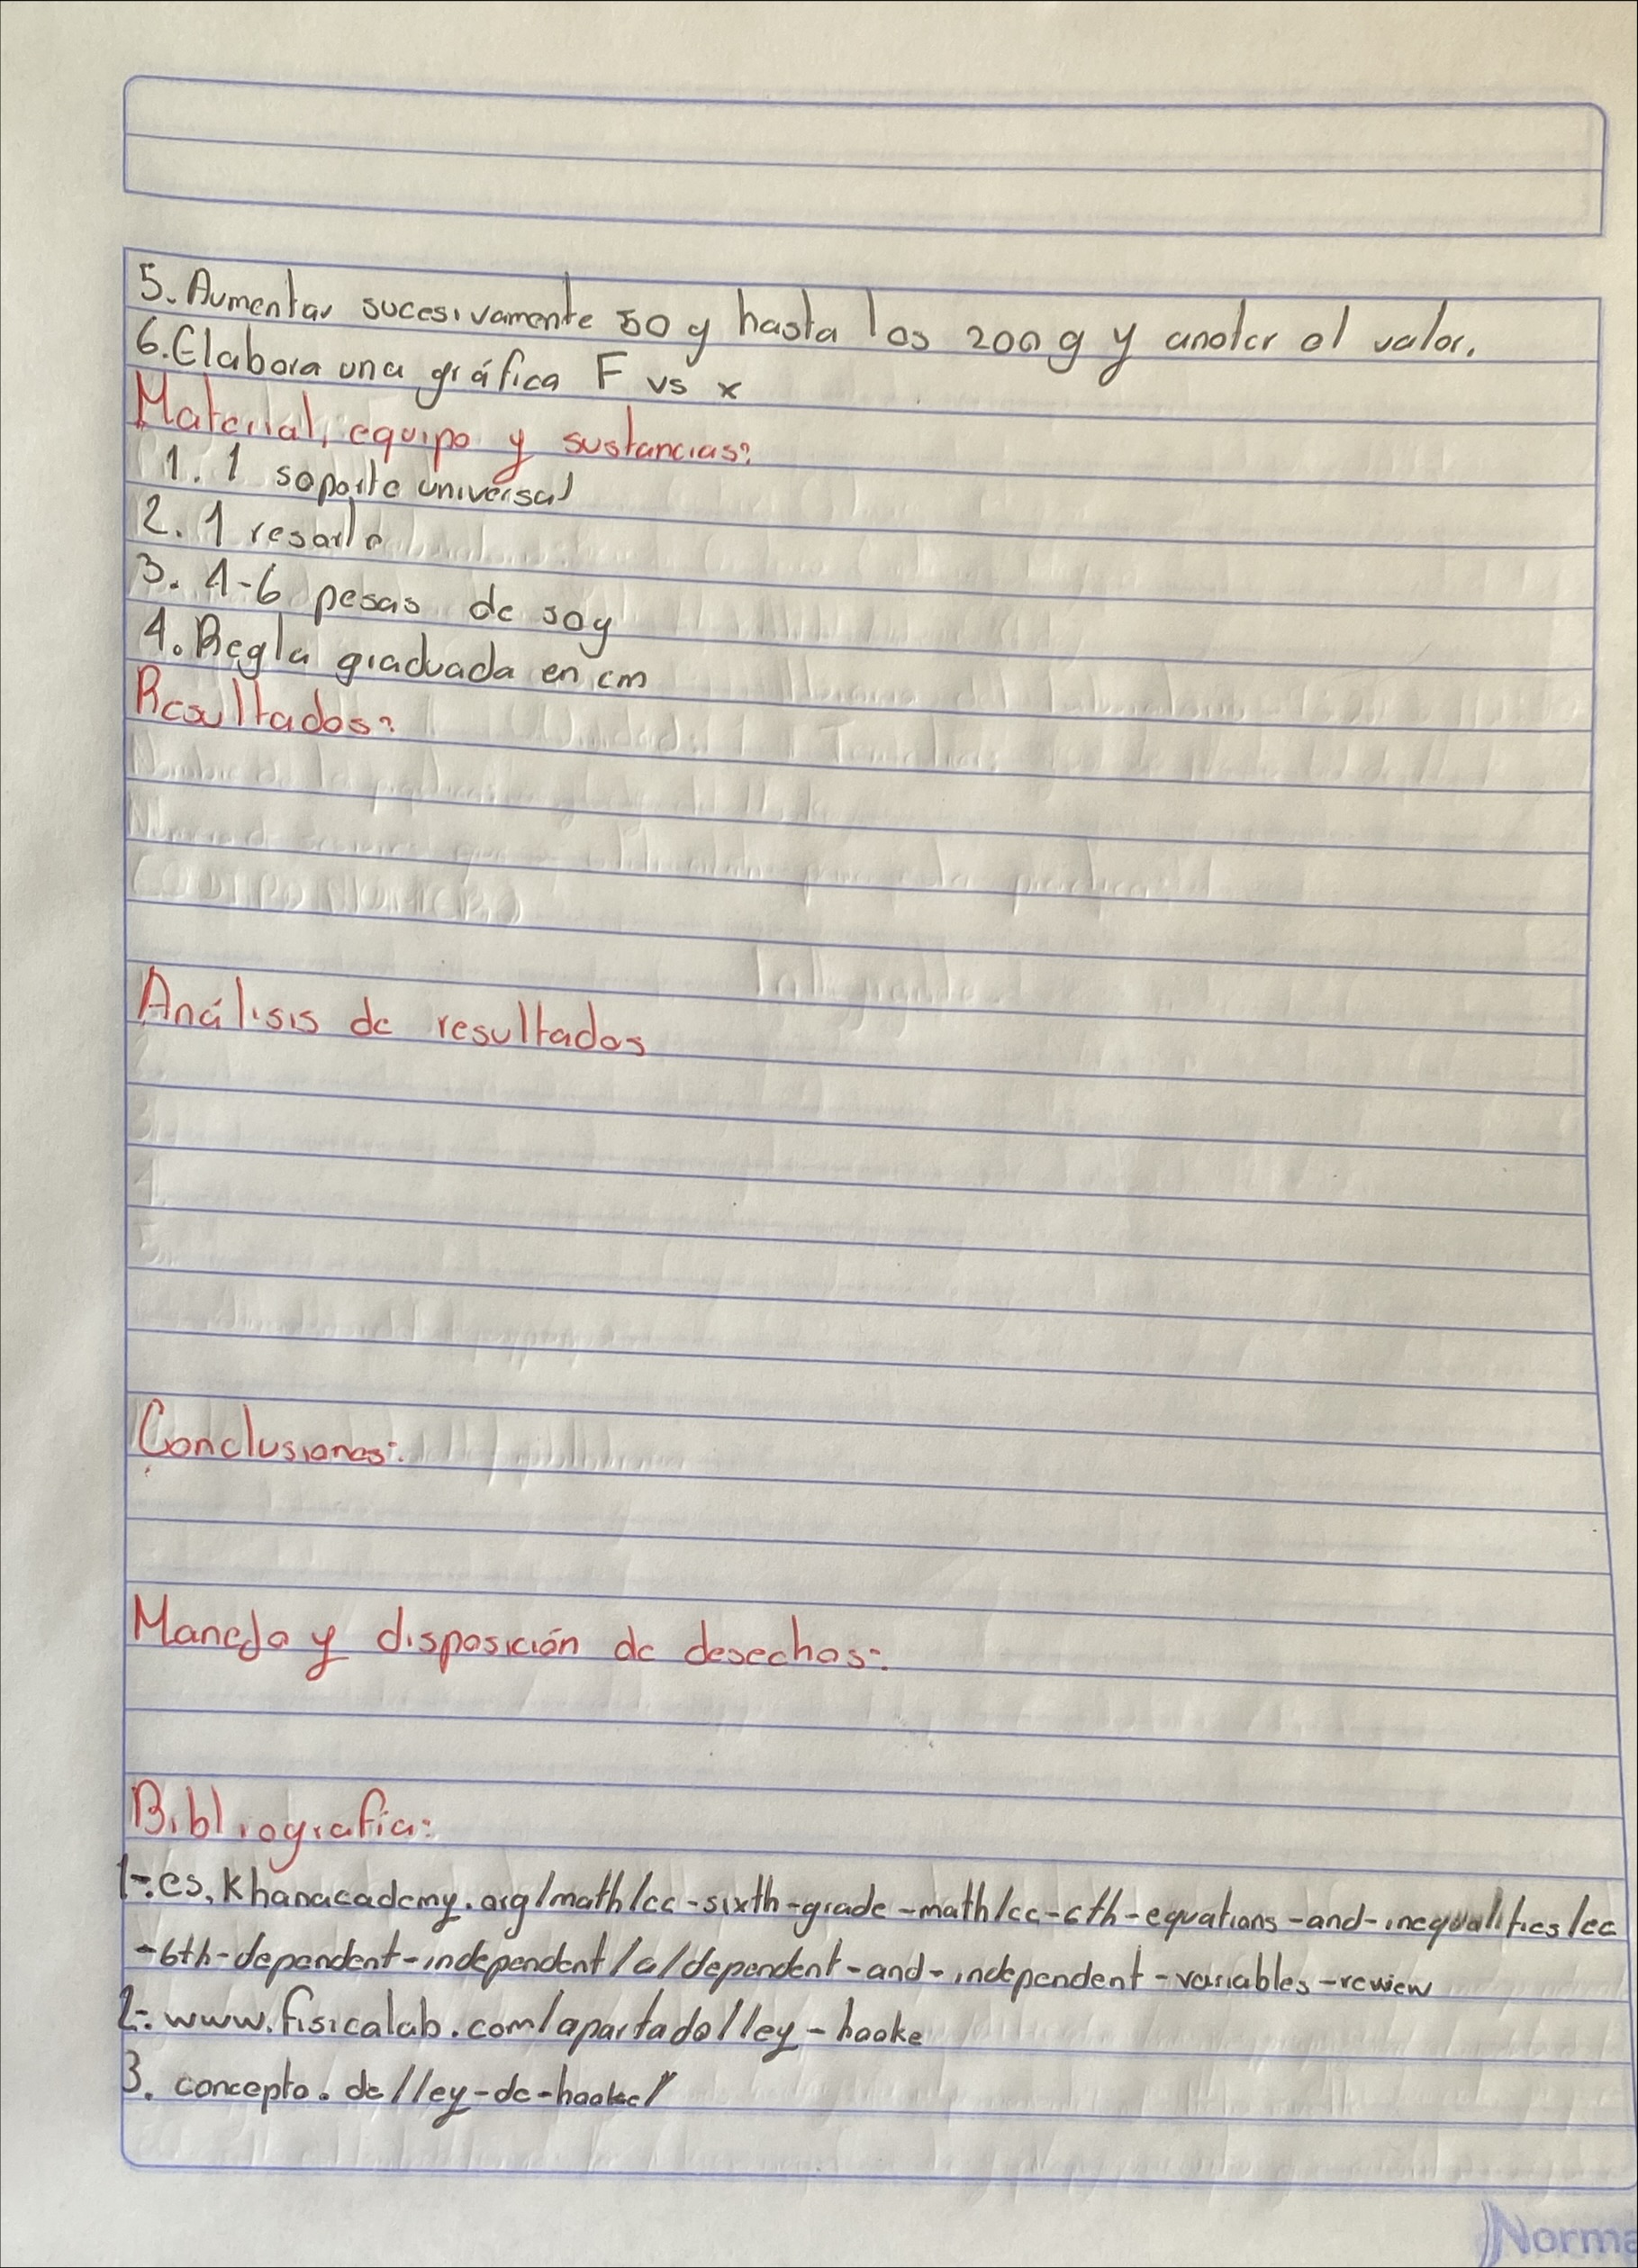 5. Aumentar sucesivamente 50 g hasta los 200 g y anotar el valor.
6. Elabora una gráfica F vs x
Material, equipo y sustancias:
1. 1 soporte universal
2. 1 resorte
3. 4-6 pesas de 50g
4. Regla graduada en cm
Resultados:
Análisis de resultados
Conclusiones:
Manejo y disposición de desechos:
Bibliografia:
1-. es.khanacademy.org/math/cc-sixth-grade-math/cc-6th-equations-and-inequalities/cc
-6th-dependent-independent/a/dependent-and-independent-variables-review
2-. www.fisicalab.com/apartado/ley-hooke
3. concepto.de/ley-de-hooke/
Norma